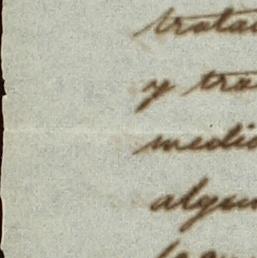 trata
y tra
medio
algun